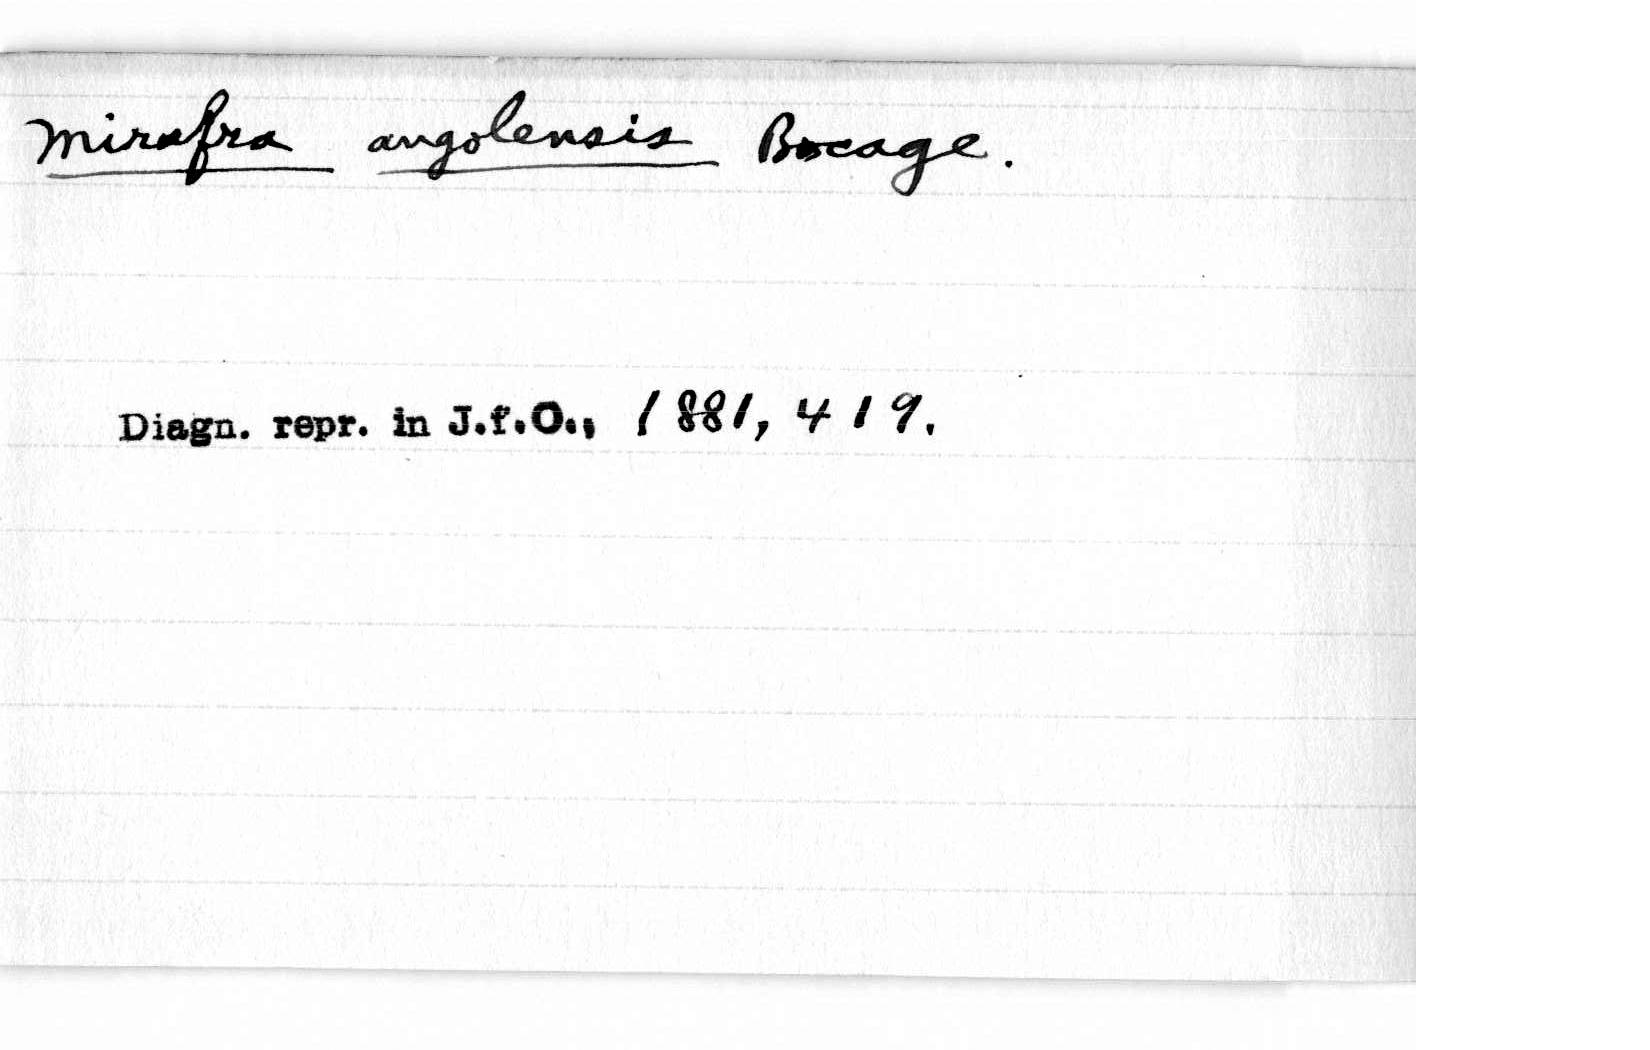 Mirafra angolensis Bocage.
Diagn. repr. in J.f.O., 1881, 419.